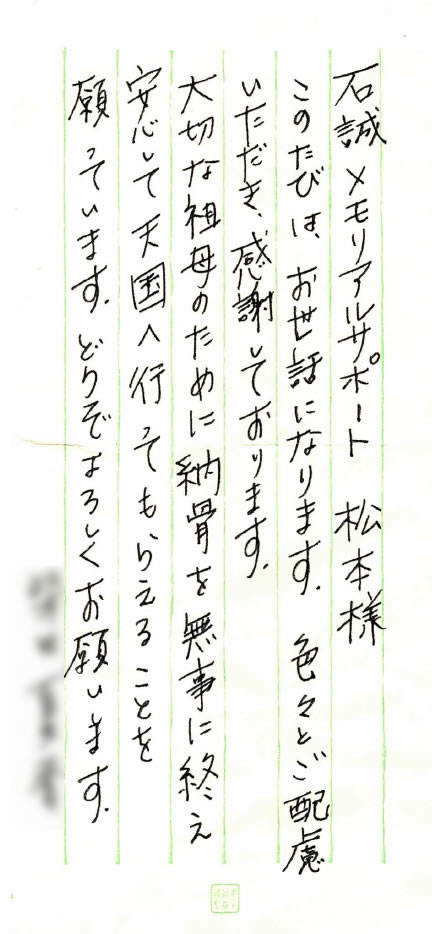 石誠メモリアルサポート　松本様
このたびは、お世話になります。色々とご配慮
いただき、感謝しております。
大切な祖母のために納骨を無事に終え
安心して天国へ行ってもらえることを
願っています。どうぞよろしくお願います。